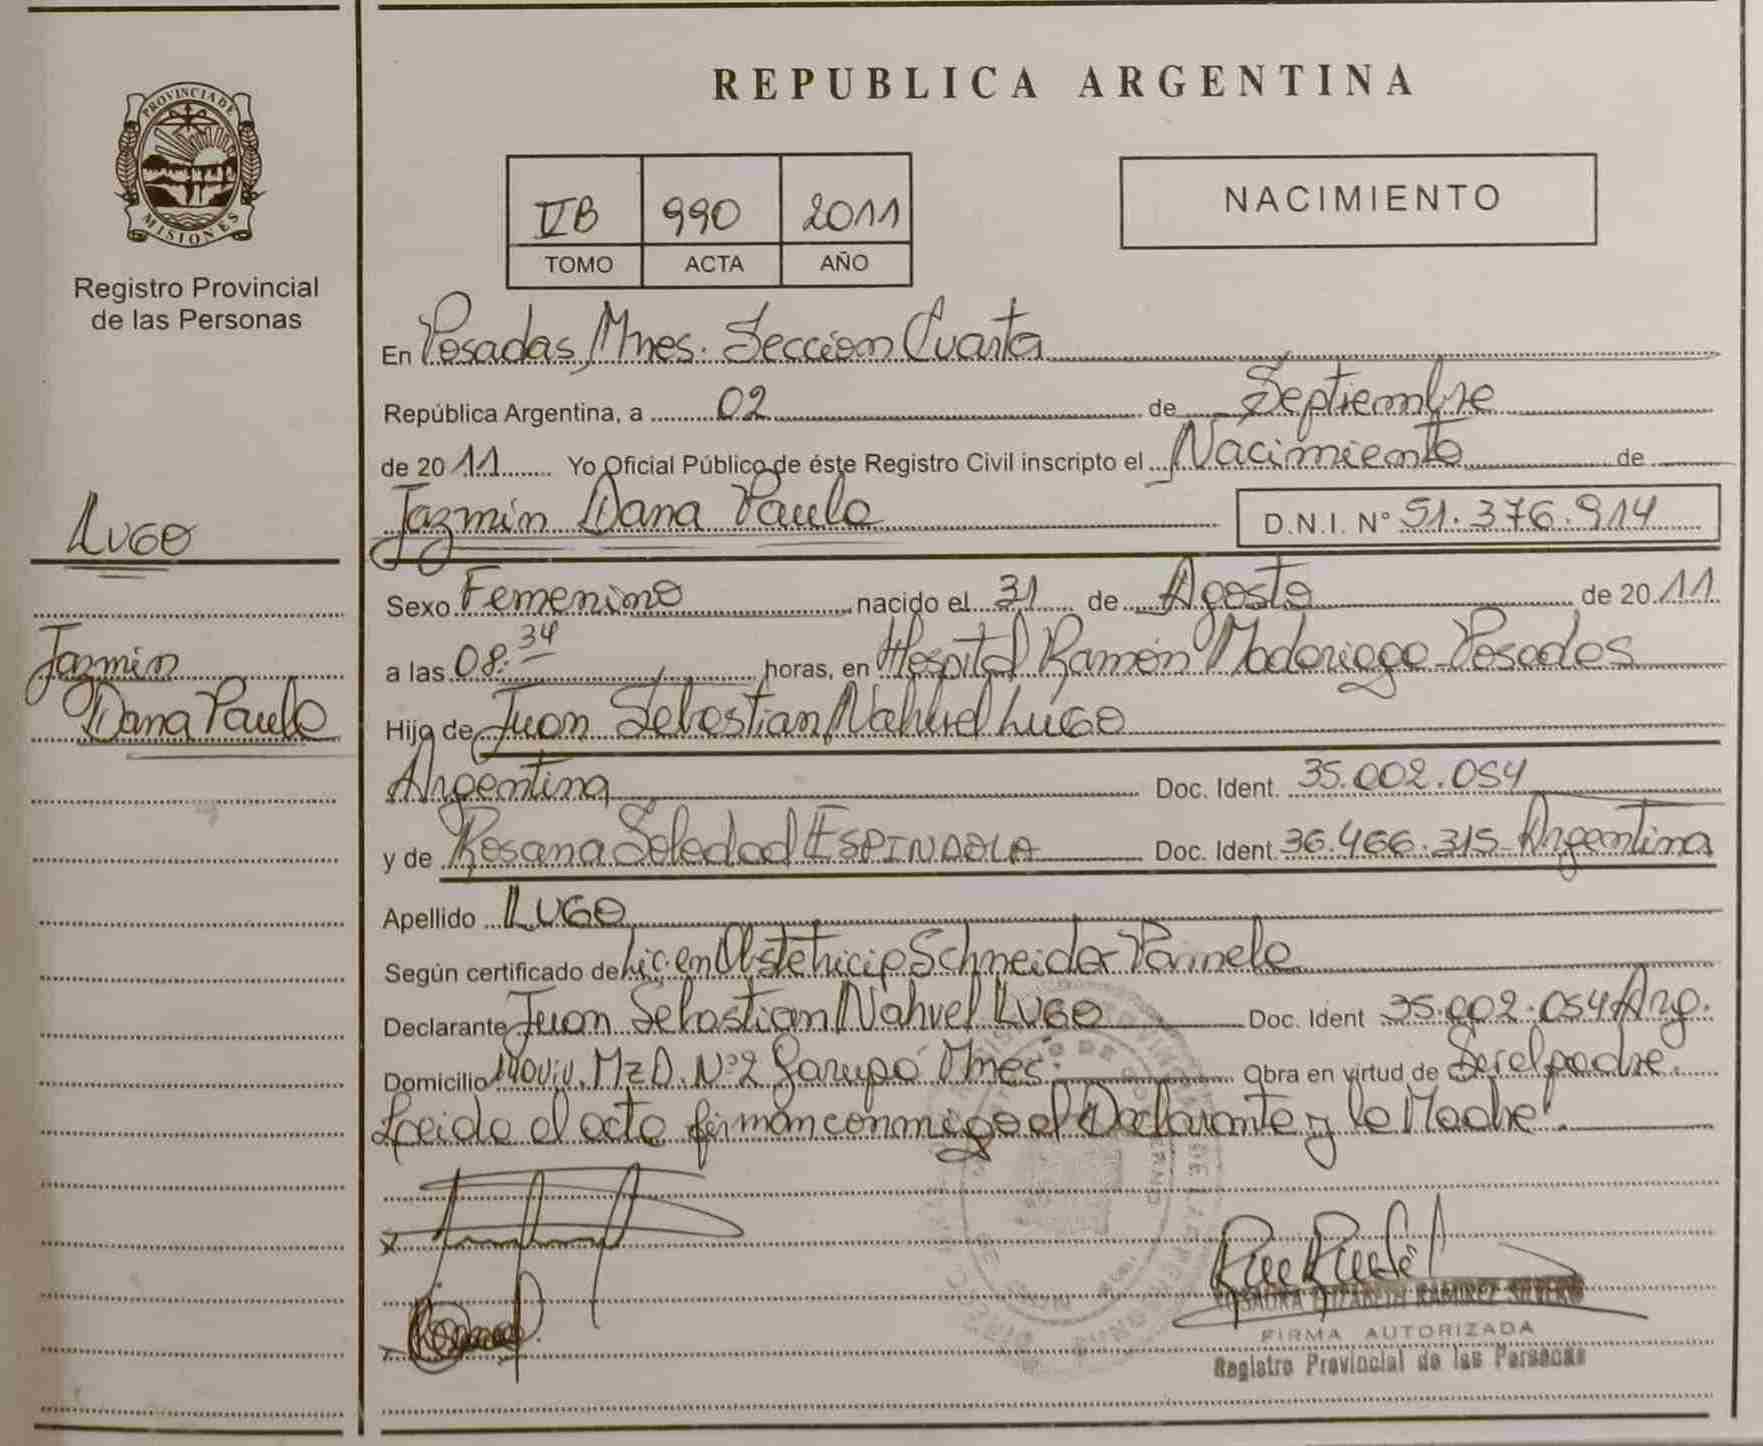 PROVINCIA DE
MISIONES
Registro Provincial
de las Personas
LUGO
Jazmin
Dana Paula
REPUBLICA ARGENTINA
990 2011
TOMO ACTA AÑO
NACIMIENTO
En Posadas, Mnes. Seccion Cuarta
República Argentina, a 02 de Septiembre
de 2011 Yo Oficial Público de éste Registro Civil inscripto el Nacimiento de
Jazmin Dana Paula D.N.I. N° 51.376.914
Sexo Femenino nacido el 31 de Agosto de 2011
a las 08:34 horas, en Hospital Ramón Madariaga Posadas
Hijo de Juan Sebastian Nahuel LUGO
Argentina Doc. Ident. 35.002.054
y de Rosana Soledad ESPINDOLA Doc. Ident. 36.466.315 Argentina
Apellido LUGO
Según certificado de Lic. en Obstetricia Schneider
Declarante Juan Sebastian Nahuel LUGO Doc. Ident 35.002.054 Arg.
Domicilio Viv. Mz D. N°2 Garupá Mnes. Obra en virtud de Ser el padre.
Leida el acta firman conmigo el Declarante y la Madre.
ELIZABETH RAMIREZ
FIRMA AUTORIZADA
Registro Provincial de las Personas